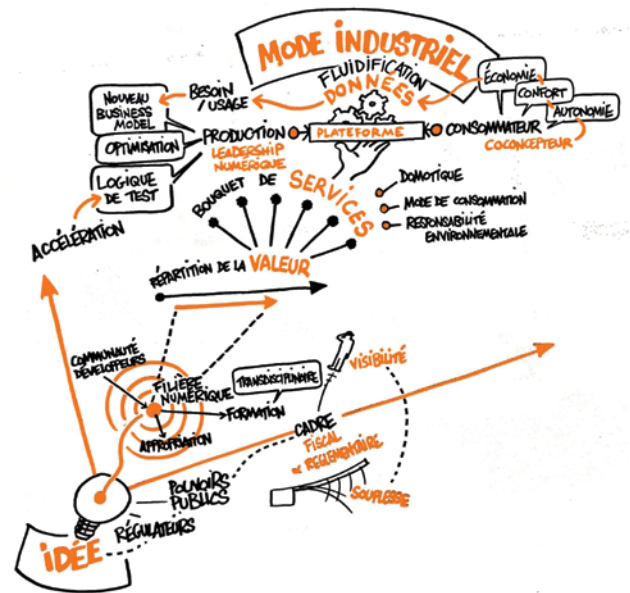 MODE INDUSTRIEL
FLUIDIFICATION
DONNÉES
BESOIN
/ USAGE
NOUVEAU
BUSINESS
MODEL
OPTIMISATION
LOGIQUE
DE TEST
PRODUCTION
LEADERSHIP
NUMÉRIQUE
PLATEFORME
CONSOMMATEUR
COCONCEPTEUR
ÉCONOMIE
CONFORT
AUTONOMIE
BOUQUET DE SERVICES
DOMOTIQUE
MODE DE CONSOMMATION
RESPONSABILITÉ
ENVIRONNEMENTALE
ACCÉLÉRATION
RÉPARTITION DE LA VALEUR
COMMUNAUTÉ
DÉVELOPPEURS
FILIÈRE
NUMÉRIQUE
TRANSDISCIPLINAIRE
FORMATION
APPROPRIATION
VISIBILITÉ
CADRE
FISCAL
& RÉGLEMENTAIRE
SOUPLESSE
POUVOIRS
PUBLICS
RÉGULATEURS
IDÉE